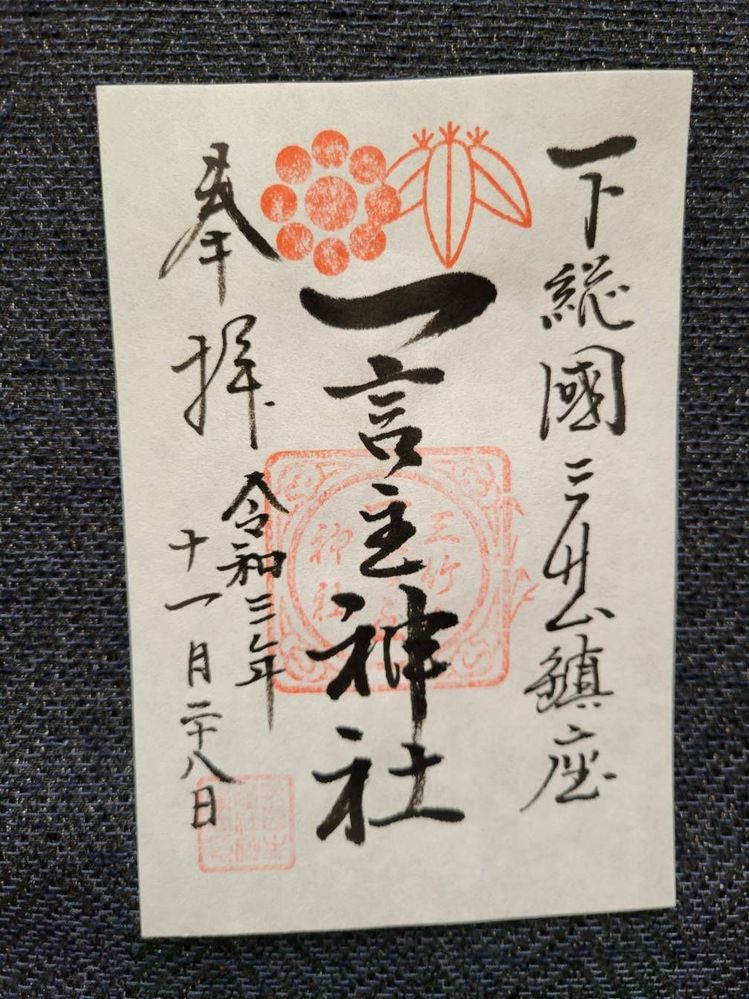 下総國三竹山鎮座
一言主神社
奉拝
令和三年
十一月二十八日
三竹
神社